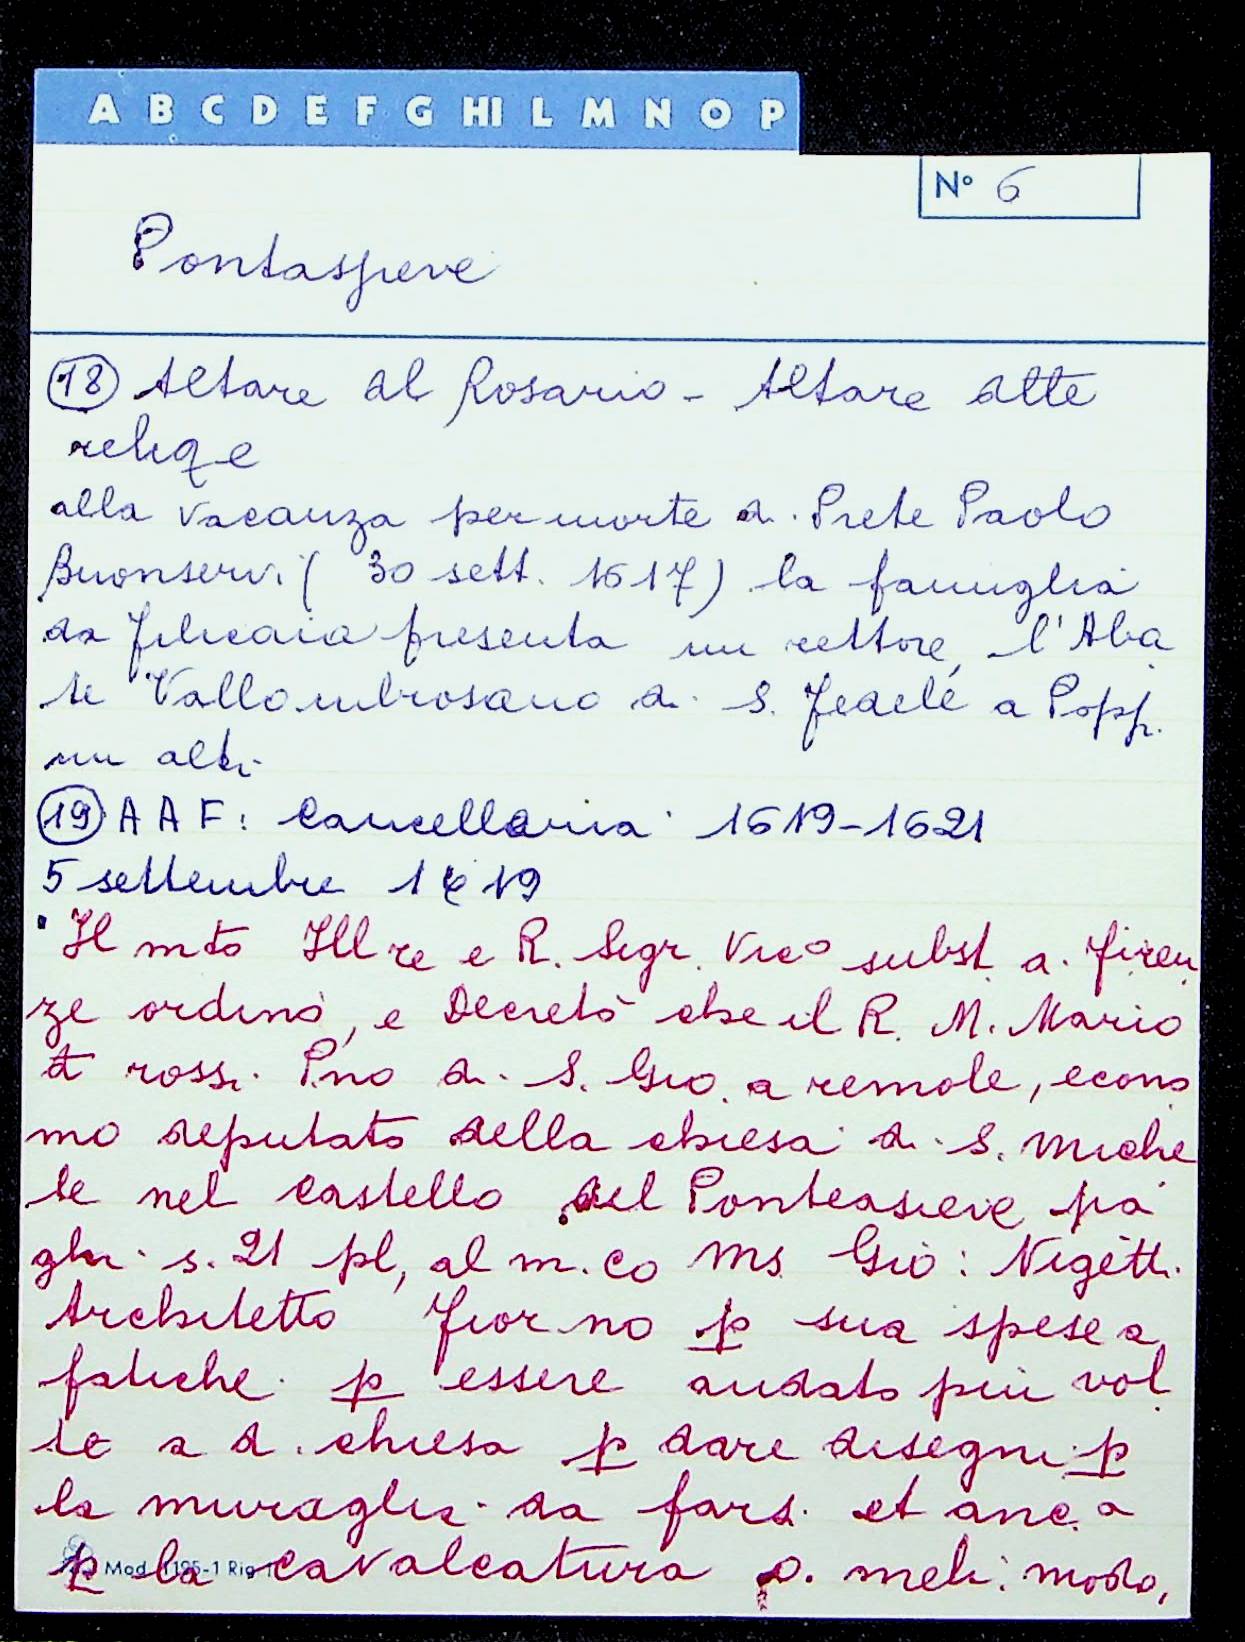 A B C D E F G HI L M N O P
N° 6
Pontassieve
18 Altare al Rosario - Altare alle
reliqe
alla vacanza per morte di Prete Paolo
Buonservi ( 30 sett. 1617) la famiglia
da Filicaia presenta un rettore, l'Aba
te Vallombrosano di S. Fedele a Poppi
un altr.
19 AAF: Cancelleria 1619-1621
5 settembre 1619
"Il mto Illre e R. Sigr. Vico subst. a. Firen
ze ordinò, e Decretò che il R. M. Mario
rossi Pno di S. Gio. a remole, econo
mo deputato della chiesa di S. Miche
le nel castello del Ponteasieve pa
ghi s. 21 pl, al m.co Ms Gio: Nigetti
Architetto Fiorno p sua spese a
fatiche p essere andato più vol
te a d. chiesa p dare disegni p
la muraglia da farsi et anc. a
p la cavalcatura modo,
Mod. 1195-1 Rig